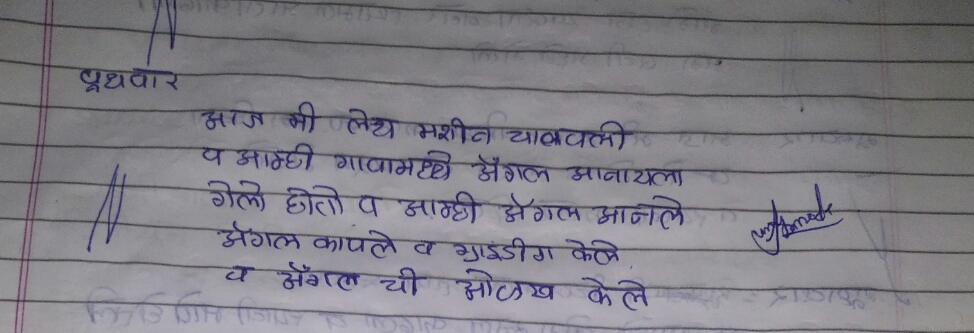 बुधवार
आज मी लेथ मशीन चालवली
व आम्ही गावामध्ये अँगल आनायला
गेलो होतो व आम्ही अँगल आनले
अँगल कापले व ग्राइंडींग केले
व अँगल ची ओळख केले